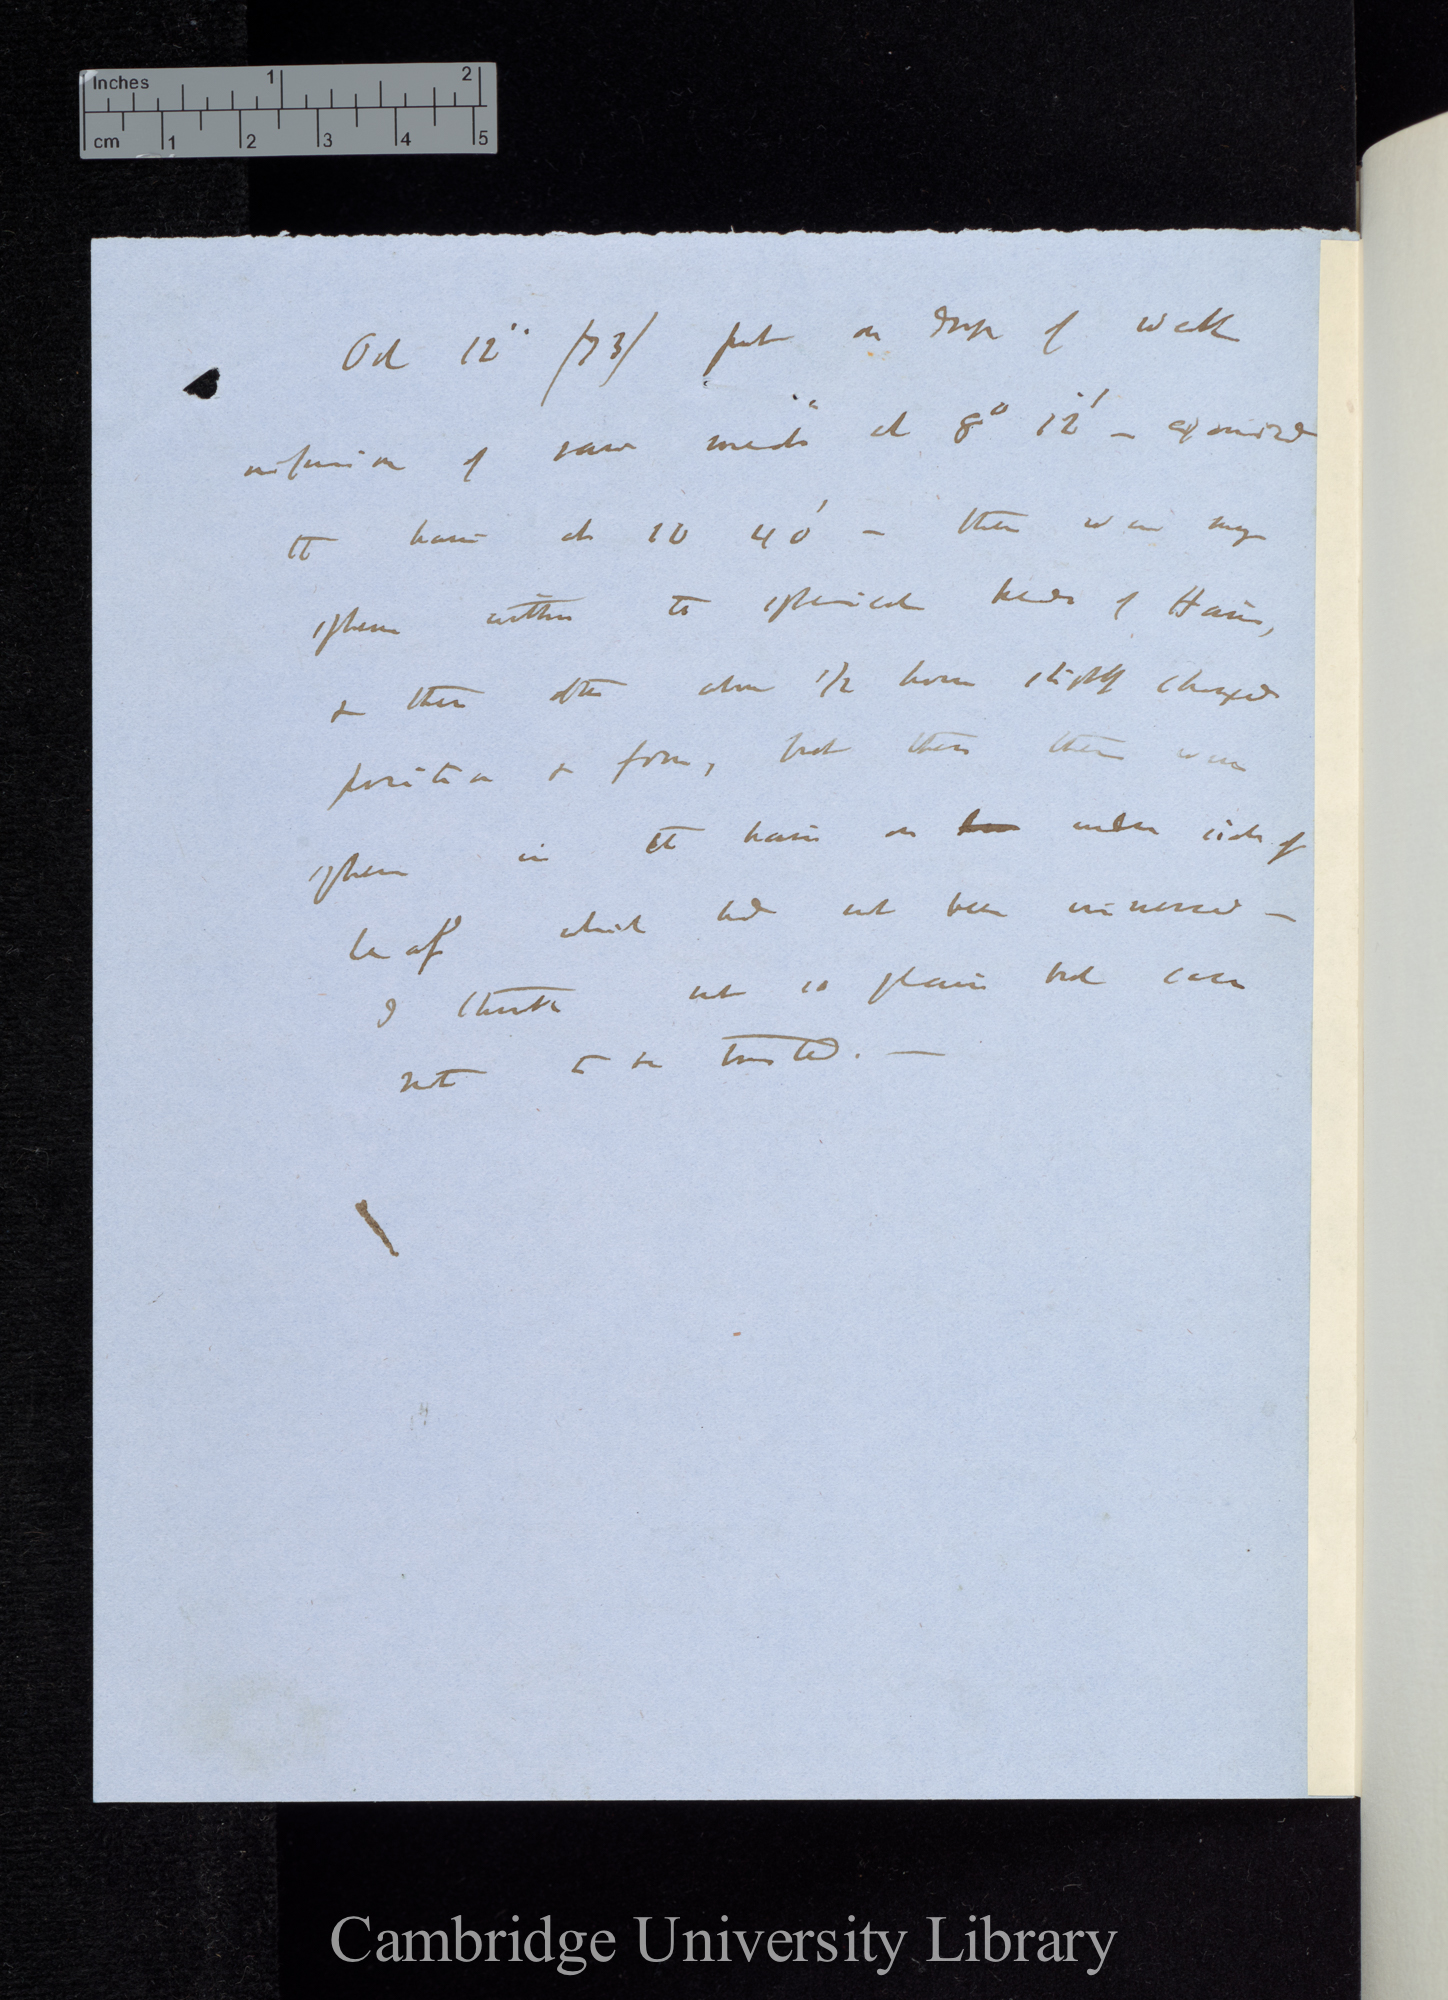 Inches 1 2
cm 1 2 3 4 5
Oct 12" /73/ put on drop of weak
infusion of raw meat at 8° 12' — examined
the hairs at 10 40' — there were many
spheres within the spherical heads of Hairs,
& these after about 1/2 hour slightly changed
position & form, but then there were
spheres in the hairs on under side of
leaf which had not been immersed —
I think not so plain but case
not to be trusted. —
Cambridge University Library